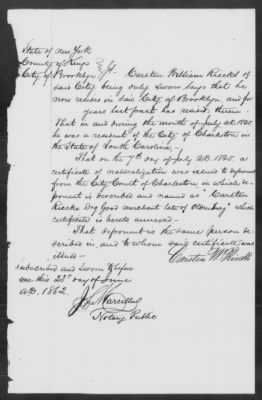 State of New York
County of Kings } ss.
City of Brooklyn } Carsten William Kiecks of
said City being duly sworn says that he
now resides in said City of Brooklyn, and for
years last past has resided therein
That in and during the month of July A.D. 1845
he was a resident of the City of Charleston in
the State of South Carolina.
That on the 7th day of July A.D. 1845 a
certificate of naturalization was issued to deponent
from the City Court of Charleston in which de-
ponent is described and named as "Carsten
Kiecks Dry Good merchant late of Oldenburg" which
certificate is hereto annexed—
That deponent is the same person de-
scribed in, and to whom said certificate was
issued—
Subscribed and sworn before
me this 23d day of June
A.D. 1862.
Carsten Wm
Notary Public